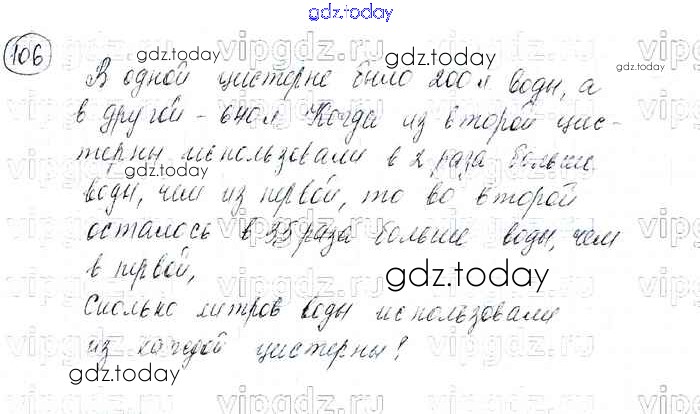 gdz.today
106
В одной цистерне было 200л воды, а
в другой - 640л. Когда из второй цис-
терны использовали в 2 раза больше
воды, чем из первой, то во второй
осталось в 3,5 раза больше воды, чем
в первой,
Сколько литров воды использовали
из каждой цистерны?
gdz.today
gdz.today
gdz.today
gdz.today
gdz.today
gdz.today
vipgdz.ru